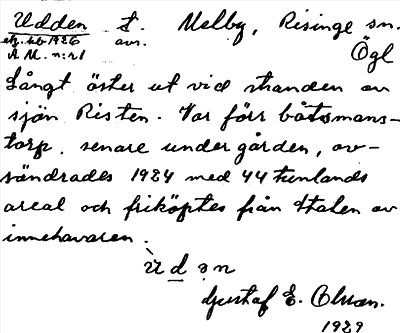 Udden t. Melby, Risinge sn.
ek. kb 1926 avs. Ögl
A M. n:r 1
Långt öster ut vid stranden av
sjön Risten. Var förr båtsmans-
torp, senare under gården, av-
söndrades 1924 med 44 tunlands
areal och friköptes från staten av
innehavaren.
ù d ə n
Gustaf E. Olsson.
1929